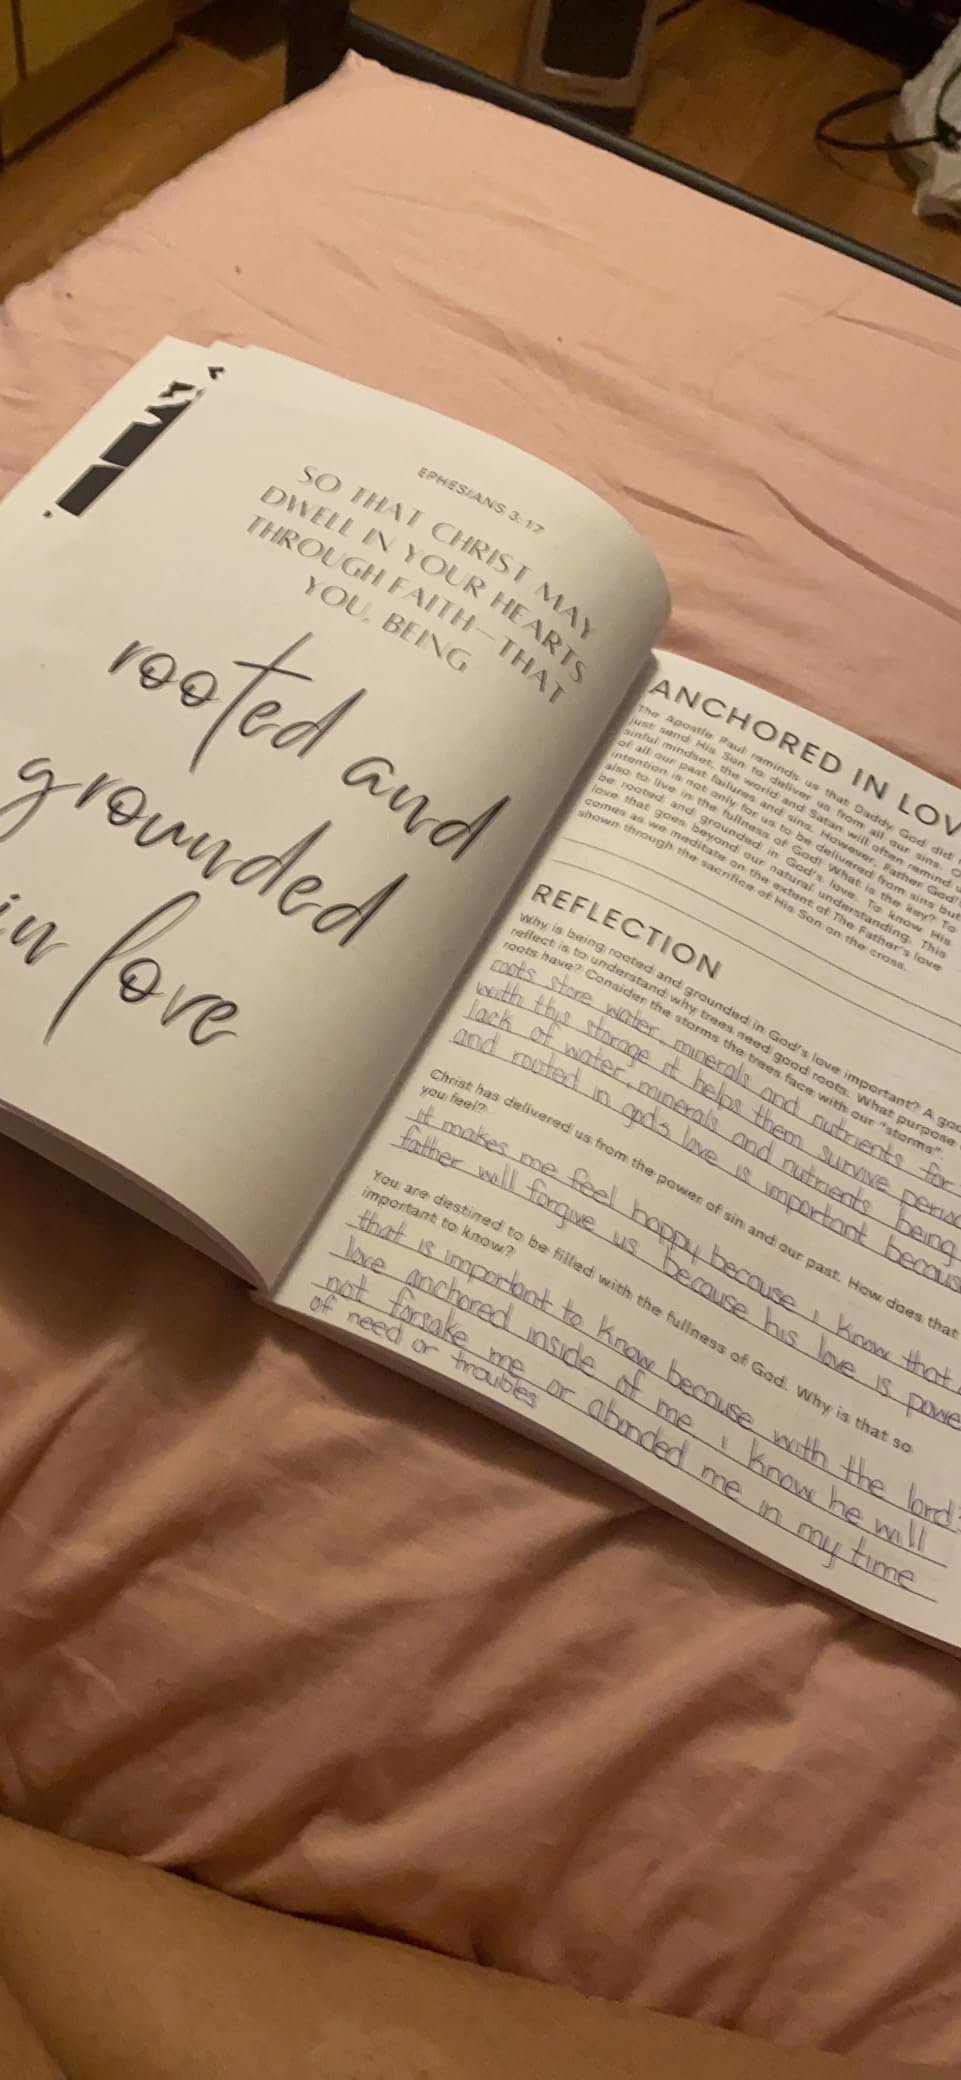 EPHESIANS 3:17
SO THAT CHRIST MAY
DWELL IN YOUR HEARTS
THROUGH FAITH—THAT
YOU, BEING
rooted and
grounded
in love
ANCHORED IN LOV
The Apostle Paul reminds us that Daddy God did
just send His Son to deliver us from all our sins.
sinful mindset, the world and Satan will often remind u
of all our past failures and sins. However, Father God's
intention is not only for us to be delivered from sins but
also to live in the fullness of God! What is the key? To
be rooted and grounded in God's love. To know His
love that goes beyond our natural understanding. This
comes as we meditate on the extent of The Father's love
shown through the sacrifice of His Son on the cross.
REFLECTION
Why is being rooted and grounded in God's love important? A goo
reflect is to understand why trees need good roots. What purpose
roots have? Consider the storms the trees face with our "storms".
roots store water, minerals and nutrients for
with this storage it helps them survive perio
lack of water, minerals and nutrients being
and rooted in gods love is important becaus
Christ has delivered us from the power of sin and our past. How does that
you feel?
it makes me feel happy because i know that
father will forgive us because his love is powe
You are destined to be filled with the fullness of God. Why is that so
important to know?
that is important to know because with the lord's
love anchored inside of me i know he will
not forsake me or abonded me in my time
of need or troubles